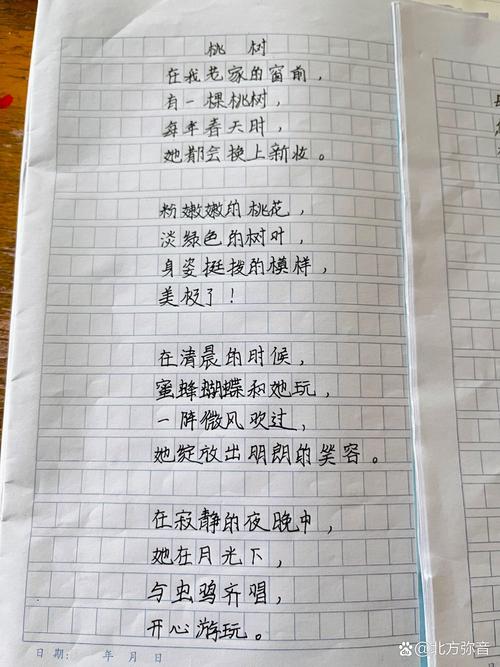 桃树
在我老家的窗前，
有一棵桃树，
每年春天时，
她都会换上新妆。
粉嫩嫩的桃花，
淡绿色的树叶，
身姿挺拨的模样，
美极了！
在清晨的时候，
蜜蜂蝴蝶和她玩，
一阵微风吹过，
她绽放出明朗的笑容。
在寂静的夜晚中，
她在月光下，
与虫鸣齐唱，
开心游玩。
日期： 年 月 日
百家号/北方弥音